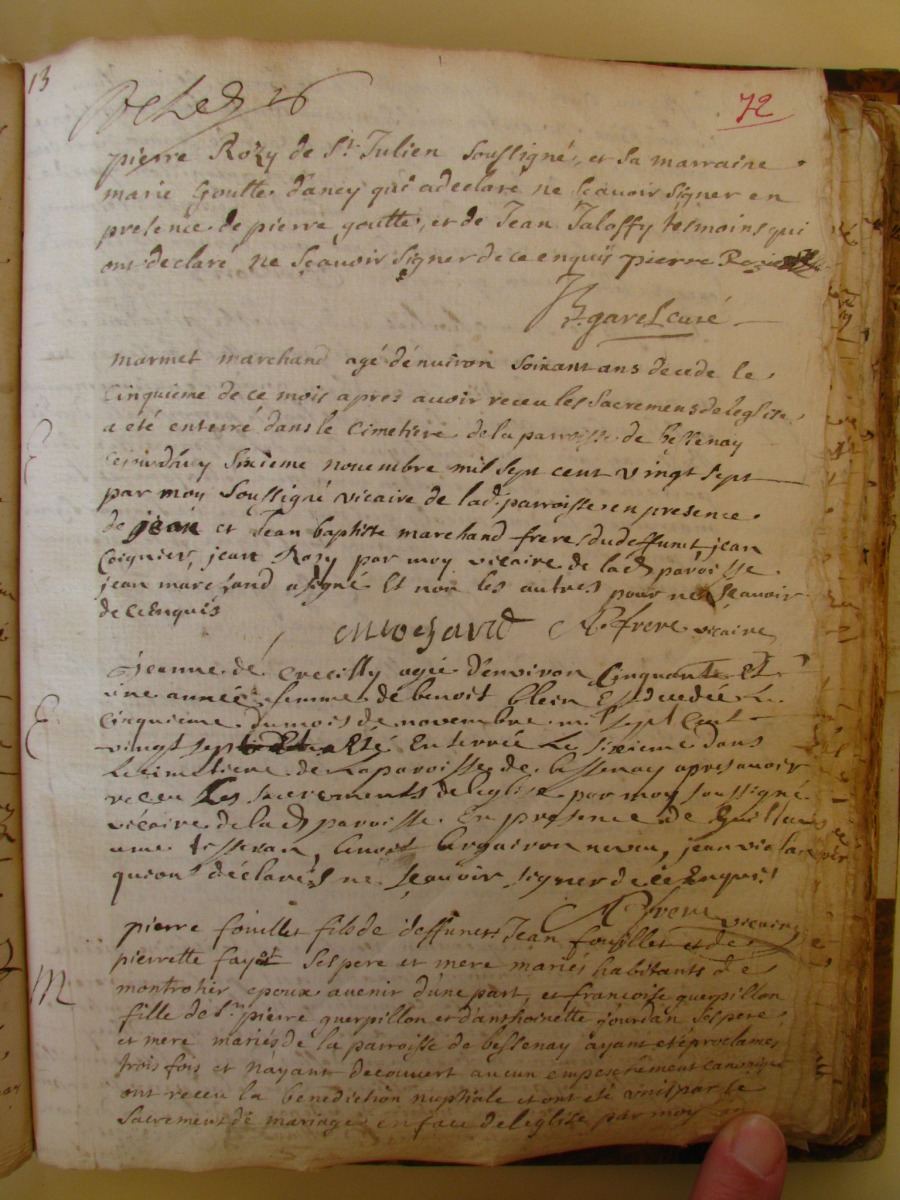 13
72
pierre Rozy de St Julien soussigné, et sa marraine
marie Goutte d'ancy qui a declaré ne scavoir signer en
presence de pierre goutte, et de Jean Jaloffy tesmoins qui
ont declaré ne scavoir signer de ce enquis pierre
garel curé
marmet marchand agé dénuiron soixant ans decede le
cinquieme de ce mois apres auoir receu les sacremens de leglise
a été enterré dans le cimetiere de la parroisse de bessenay
cejourdáuy sixieme novembre mil sept cent vingt sept
par moy soussigné vicaire de lad. parroisse en presence
de jean et Jean baptiste marchand freres du deffunct jean
Coignier, jean Rozy par moy vicaire de lad paroisse
jean marchand a signé Et non les autres pour ne sceauoir
de ce Enquis
frere vicaire
Jeanne de Crecilly agée d'environ Cinquante Et
une année femme de benoit blein Est decedée Le
cinquieme du mois de novembre mil sept cent
vingt sept Eté Enterrée Le sixieme dans
Le cimetiere de La paroisse de bessenay apres avoir
receu Les sacrements de leglise par moy soussigné
vicaire de lad paroisse En presence de Guillau
ume tisseran, benoit neveu, jean
qui ont déclarés ne sceavoir signer de ce Enquis
frere vicaire
pierre fouillet fils de deffunct Jean fouillet et de
pierrette fayet ses pere et mere mariés habitants de
montrotier epoux avenir d'une part, et francoise guerpillon
fille de Sr pierre guerpillon et d'anthoinette jourdan ses pere
et mere mariés de la parroisse de bessenay ayant eté proclamés
trois fois et n'ayant decouvert aucun empeschement canonique
ont receu la benediction nuptiale et ont eté unis par le
Sacrement de mariage en face de leglise par moy
M